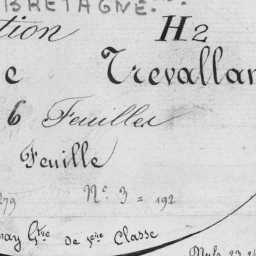 BRETAGNE.
tion H2
e Trevallan
6 Feuilles
Feuille
279 N° 3 = 192
ray Gtre de 1ère Classe